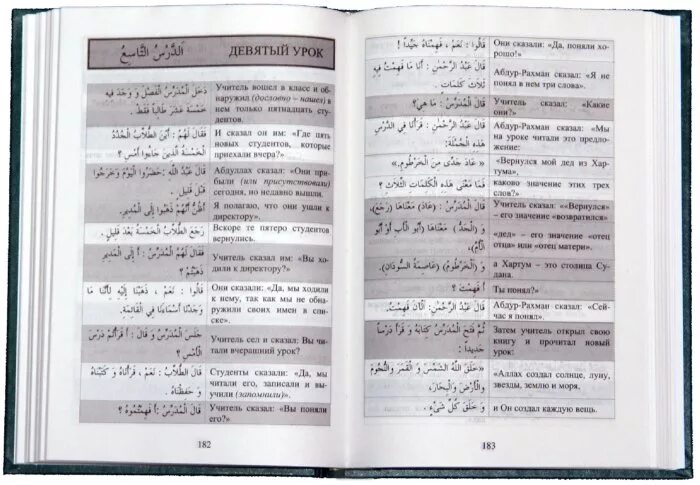 اَلدَّرْسُ التَّاسِعُ
ДЕВЯТЫЙ УРОК
دَخَلَ الْمُدَرِّسُ الْفَصْلَ وَ وَجَدَ فِيهِ
خَمْسَةَ عَشَرَ طَالِبًا فَقَطْ.
Учитель вошел в класс и об-
наружил (дословно – нашел) в
нем только пятнадцать сту-
дентов.
فَقَالَ لَهُمْ : أَيْنَ الطُّلَّابُ الْجُدُدُ
الْخَمْسَةُ الَّذِينَ جَاءُوا أَمْسِ ؟
И сказал он им: «Где пять
новых студентов, которые
приехали вчера?»
قَالَ عَبْدُ اللهِ :حَضَرُوا الْيَوْمَ وَخَرَجُوا
قَبْلَ قَلِيلٍ .
أَظُنُّ أَنَّهُمْ ذَهَبُوا إِلَى الْمُدِيرِ.
Абдуллах сказал: «Они при-
были (или присутствовали)
сегодня, но недавно вышли.
Я полагаю, что они ушли к
директору».
رَجَعَ الطُّلَّابُ الْخَمْسَةُ بَعْدَ قَلِيلٍ .
Вскоре те пятеро студентов
вернулись.
قَالَ لَهُمُ الْمُدَرِّسُ : أَ إِلَى الْمُدِيرِ
ذَهَبْتُمْ ؟
Учитель сказал им: «Вы хо-
дили к директору?»
قَالُوا : نَعَمْ ، ذَهَبْنَا إِلَيْهِ لِأَنَّنَا مَا
وَجَدْنَا أَسْمَاءَنَا فِي الْقَائِمَةِ.
Они сказали: «Да, мы ходили
к нему, так как мы не обна-
ружили своих имен в спи-
ске».
جَلَسَ الْمُدَرِّسُ وَ قَالَ : أَ قَرَأْتُمْ دَرْسَ
الْأَمْسِ ؟
Учитель сел и сказал: Вы чи-
тали вчерашний урок?
قَالَ الطُّلَّابُ : نَعَمْ ، قَرَأْنَاهُ وَ كَتَبْنَاهُ
وَ حَفِظْنَاهُ .
Студенты сказали: «Да, мы
читали его, записали и вы-
учили (запомнили)».
قَالَ الْمُدَرِّسُ : أَ فَهِمْتُمُوهُ ؟
Учитель сказал: «Вы поняли
его?»
182
قَالُوا : نَعَمْ ، فَهِمْنَاهُ جَيِّدًا !
Они сказали: «Да, поняли хо-
рошо!»
قَالَ عَبْدُ الرَّحْمٰنِ : أَنَا مَا فَهِمْتُ فِيهِ
ثَلَاثَ كَلِمَاتٍ .
Абдур-Рахман сказал: «Я не
понял в нем три слова».
قَالَ الْمُدَرِّسُ : مَا هِيَ؟
Учитель сказал: «Какие
они?»
قَالَ عَبْدُ الرَّحْمٰنِ : قَرَأْنَا فِي الدَّرْسِ
هَذِهِ الْجُمْلَةَ:
Абдур-Рахман сказал: «Мы
на уроке читали это предло-
жение:
« عَادَ جَدِّي مِنَ الْخَرْطُومِ »،
«Вернулся мой дед из Хар-
тума».
فَمَا مَعْنَى هَذِهِ الْكَلِمَاتِ الثَّلَاثِ ؟
каково значение этих трех
слов?»
قَالَ الْمُدَرِّسُ : (عَادَ) مَعْنَاهَا (رَجَعَ)،
Учитель сказал: ««Вернулся»
– его значение «возвратился»
وَ (الْجَدُّ ) مَعْنَاهَا (أَبُو الْأَبِ أَوْ أَبُو
الْأُمِّ)،
«дед» – его значение «отец
отца» или «отец матери».
وَ (الْخَرْطُومُ) (عَاصِمَةُ السُّودَانِ).
а Хартум – это столица Су-
дана.
أَ فَهِمْتَ ؟
Ты понял?»
قَالَ عَبْدُ الرَّحْمٰنِ: اَلْآنَ فَهِمْتُ.
Абдур-Рахман сказал: «Сей-
час я понял».
ثُمَّ فَتَحَ الْمُدَرِّسُ كِتَابَهُ وَ قَرَأَ دَرْسًا
جَدِيدًا :
Затем учитель открыл свою
книгу и прочитал новый
урок:
«خَلَقَ اللهُ الشَّمْسَ وَ الْقَمَرَ وَالنُّجُومَ
وَالْأَرْضَ وَ الْبِحَارَ،
«Аллах создал солнце, луну,
звезды, землю и моря.
وَ خَلَقَ كُلَّ شَيْءٍ.
и Он создал каждую вещь.
183